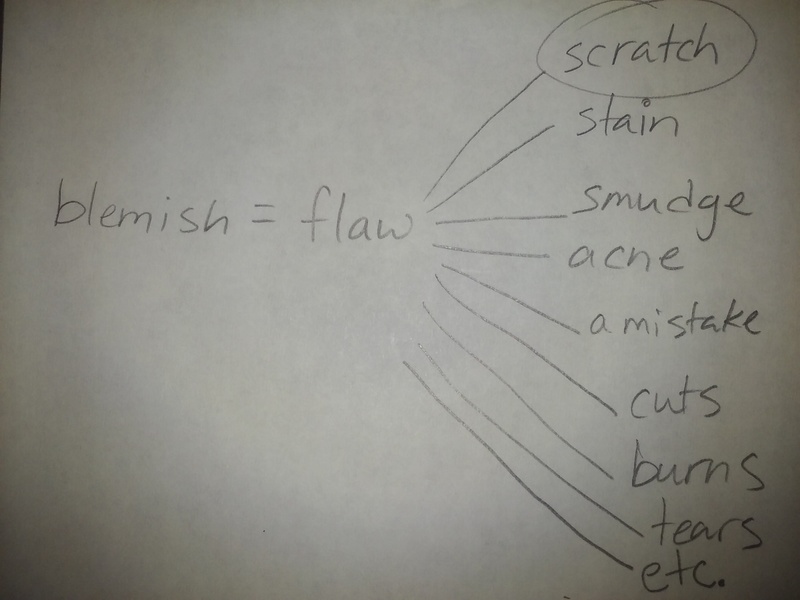 scratch
stain
blemish = flaw
smudge
acne
a mistake
cuts
burns
tears
etc.